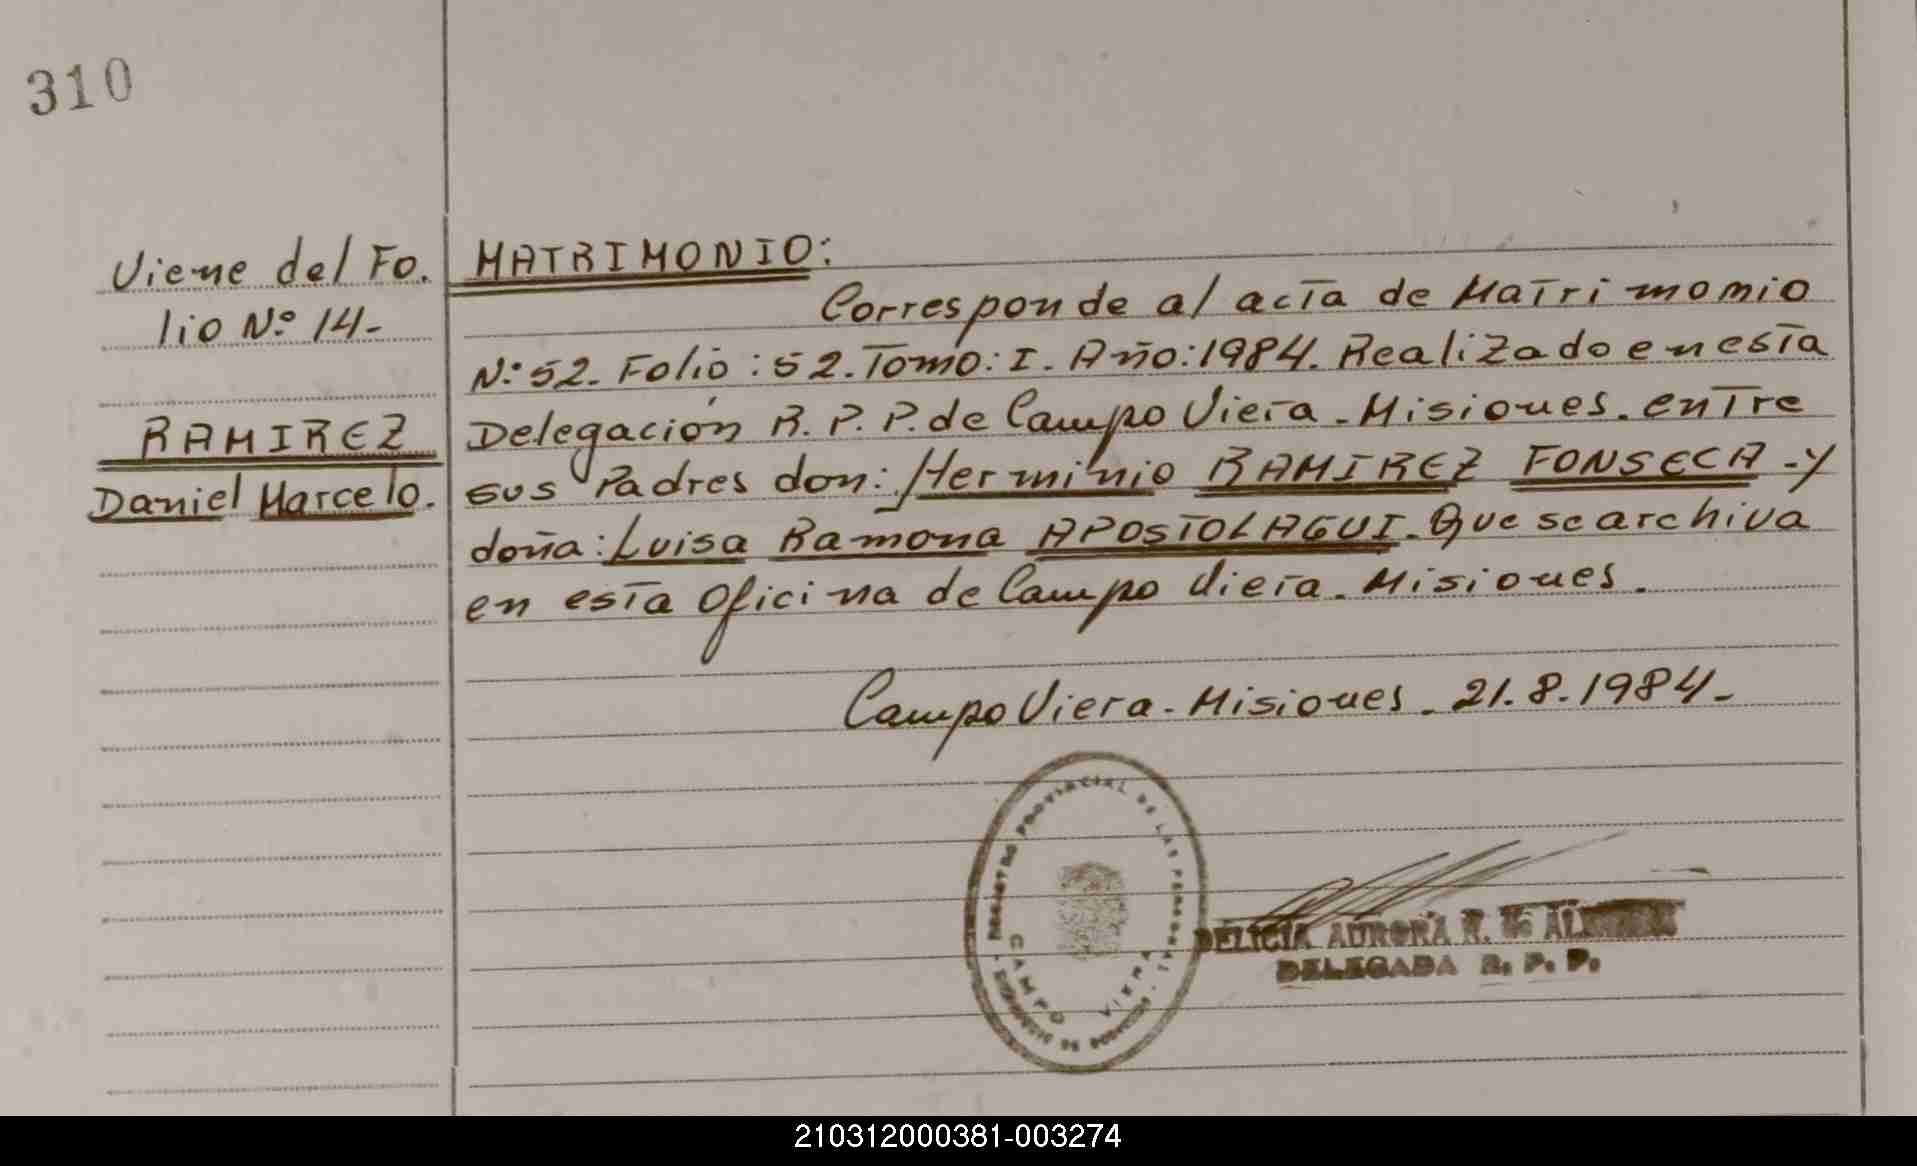 310
Viene del Fo.
lio Nº 14-
RAMIREZ
Daniel Marcelo.
MATRIMONIO:
Corresponde al acta de Matrimonio
Nº 52. Folio: 52. Tomo: I. Año: 1984. Realizado en esta
Delegación R. P. P. de Campo Viera - Misiones. entre
sus Padres don: Herminio RAMIREZ FONSECA - y
doña: Luisa Ramona APOSTOLAGUI. Que se archiva
en esta Oficina de Campo Viera. Misiones.
Campo Viera - Misiones. 21.8.1984-
REGISTRO PROVINCIAL DE LAS PERSONAS
CAMPO VIERA
DELICIA AURORA R. DE
DELEGADA R. P. P.
210312000381-003274